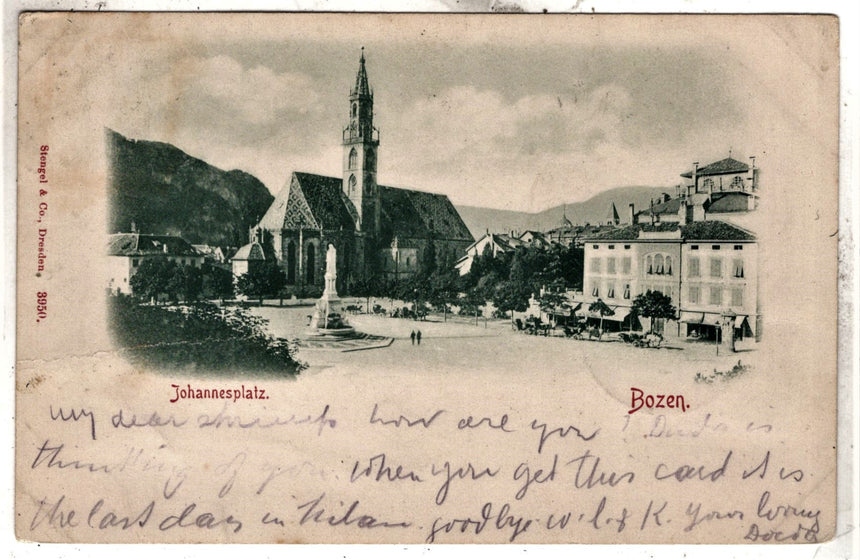 Stengel & Co., Dresden, 3950.
Johannesplatz.
Bozen.
my dear shrimps how are you ? is
thinking of you. when you get this card it is
the last day in Milan. goodbye. w. l. & K. Your loving